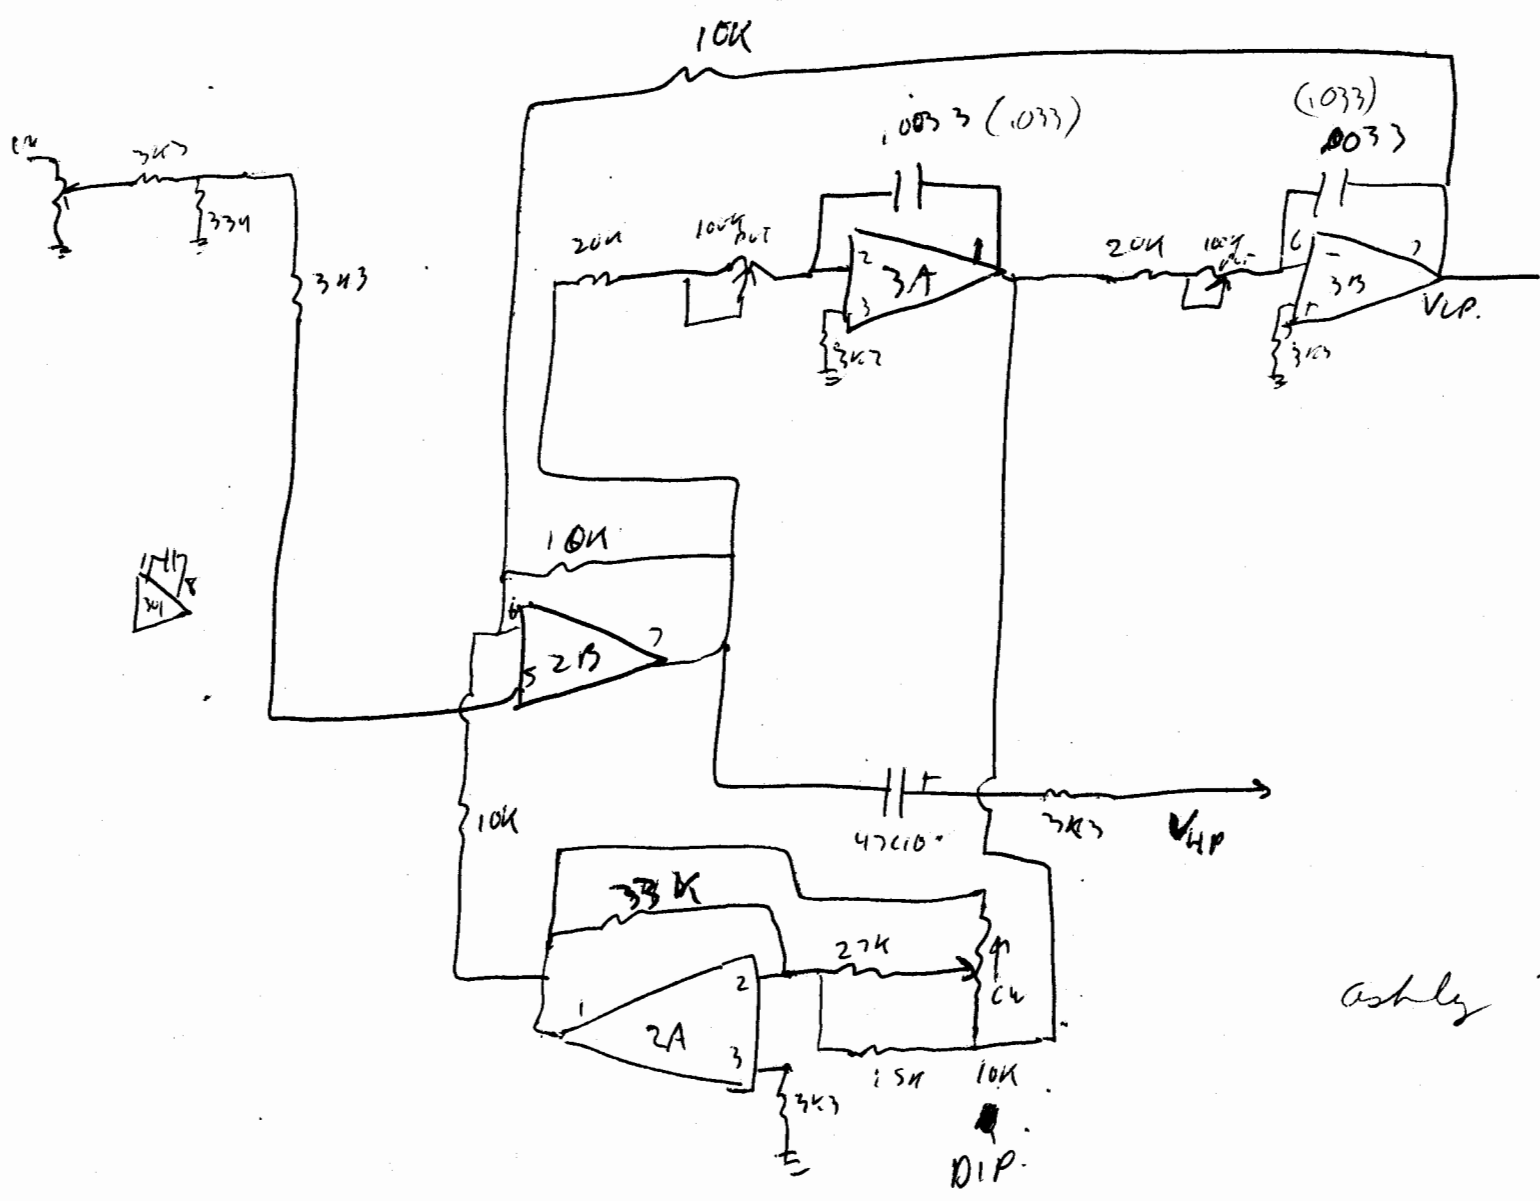 10K
.0033 (.033)
(.033)
.0033
IN
3K3
33K
3K3
20K
100K
POT
2
3A
1
3
3K3
20K
100K
POT
6
-
7
3B
+
5
3K3
VLP.
10K
6
7
2B
5
10K
+
47C10
3K3
VHP
33K
27K
CW
1
2
2A
3
15K
10K
3K3
DIP.
ashly